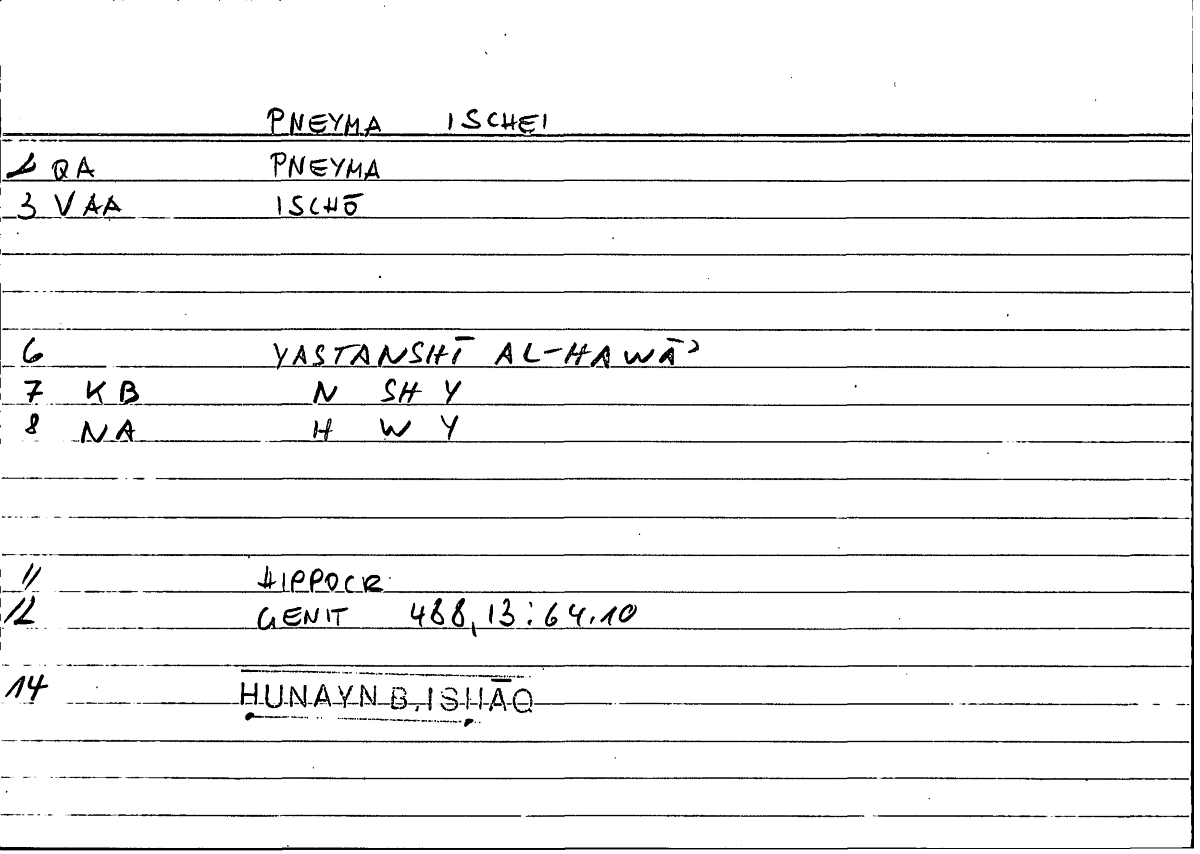 PNEYMA ISCHEI
2 QA PNEYMA
3 VAA ISCHŌ
6 YASTANSHĪ AL-HAWĀʾ
7 KB N SH Y
8 NA H W Y
11 HIPPOCR
12 GENIT 488,13:64.10
14 ḤUNAYN B. ISḤĀQ